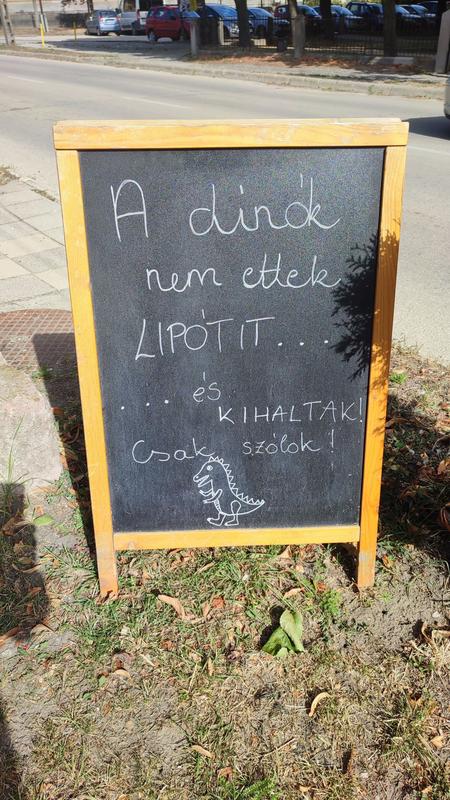 A dinók
nem ettek
LIPÓTIT...
... és
KIHALTAK!
Csak szólok!